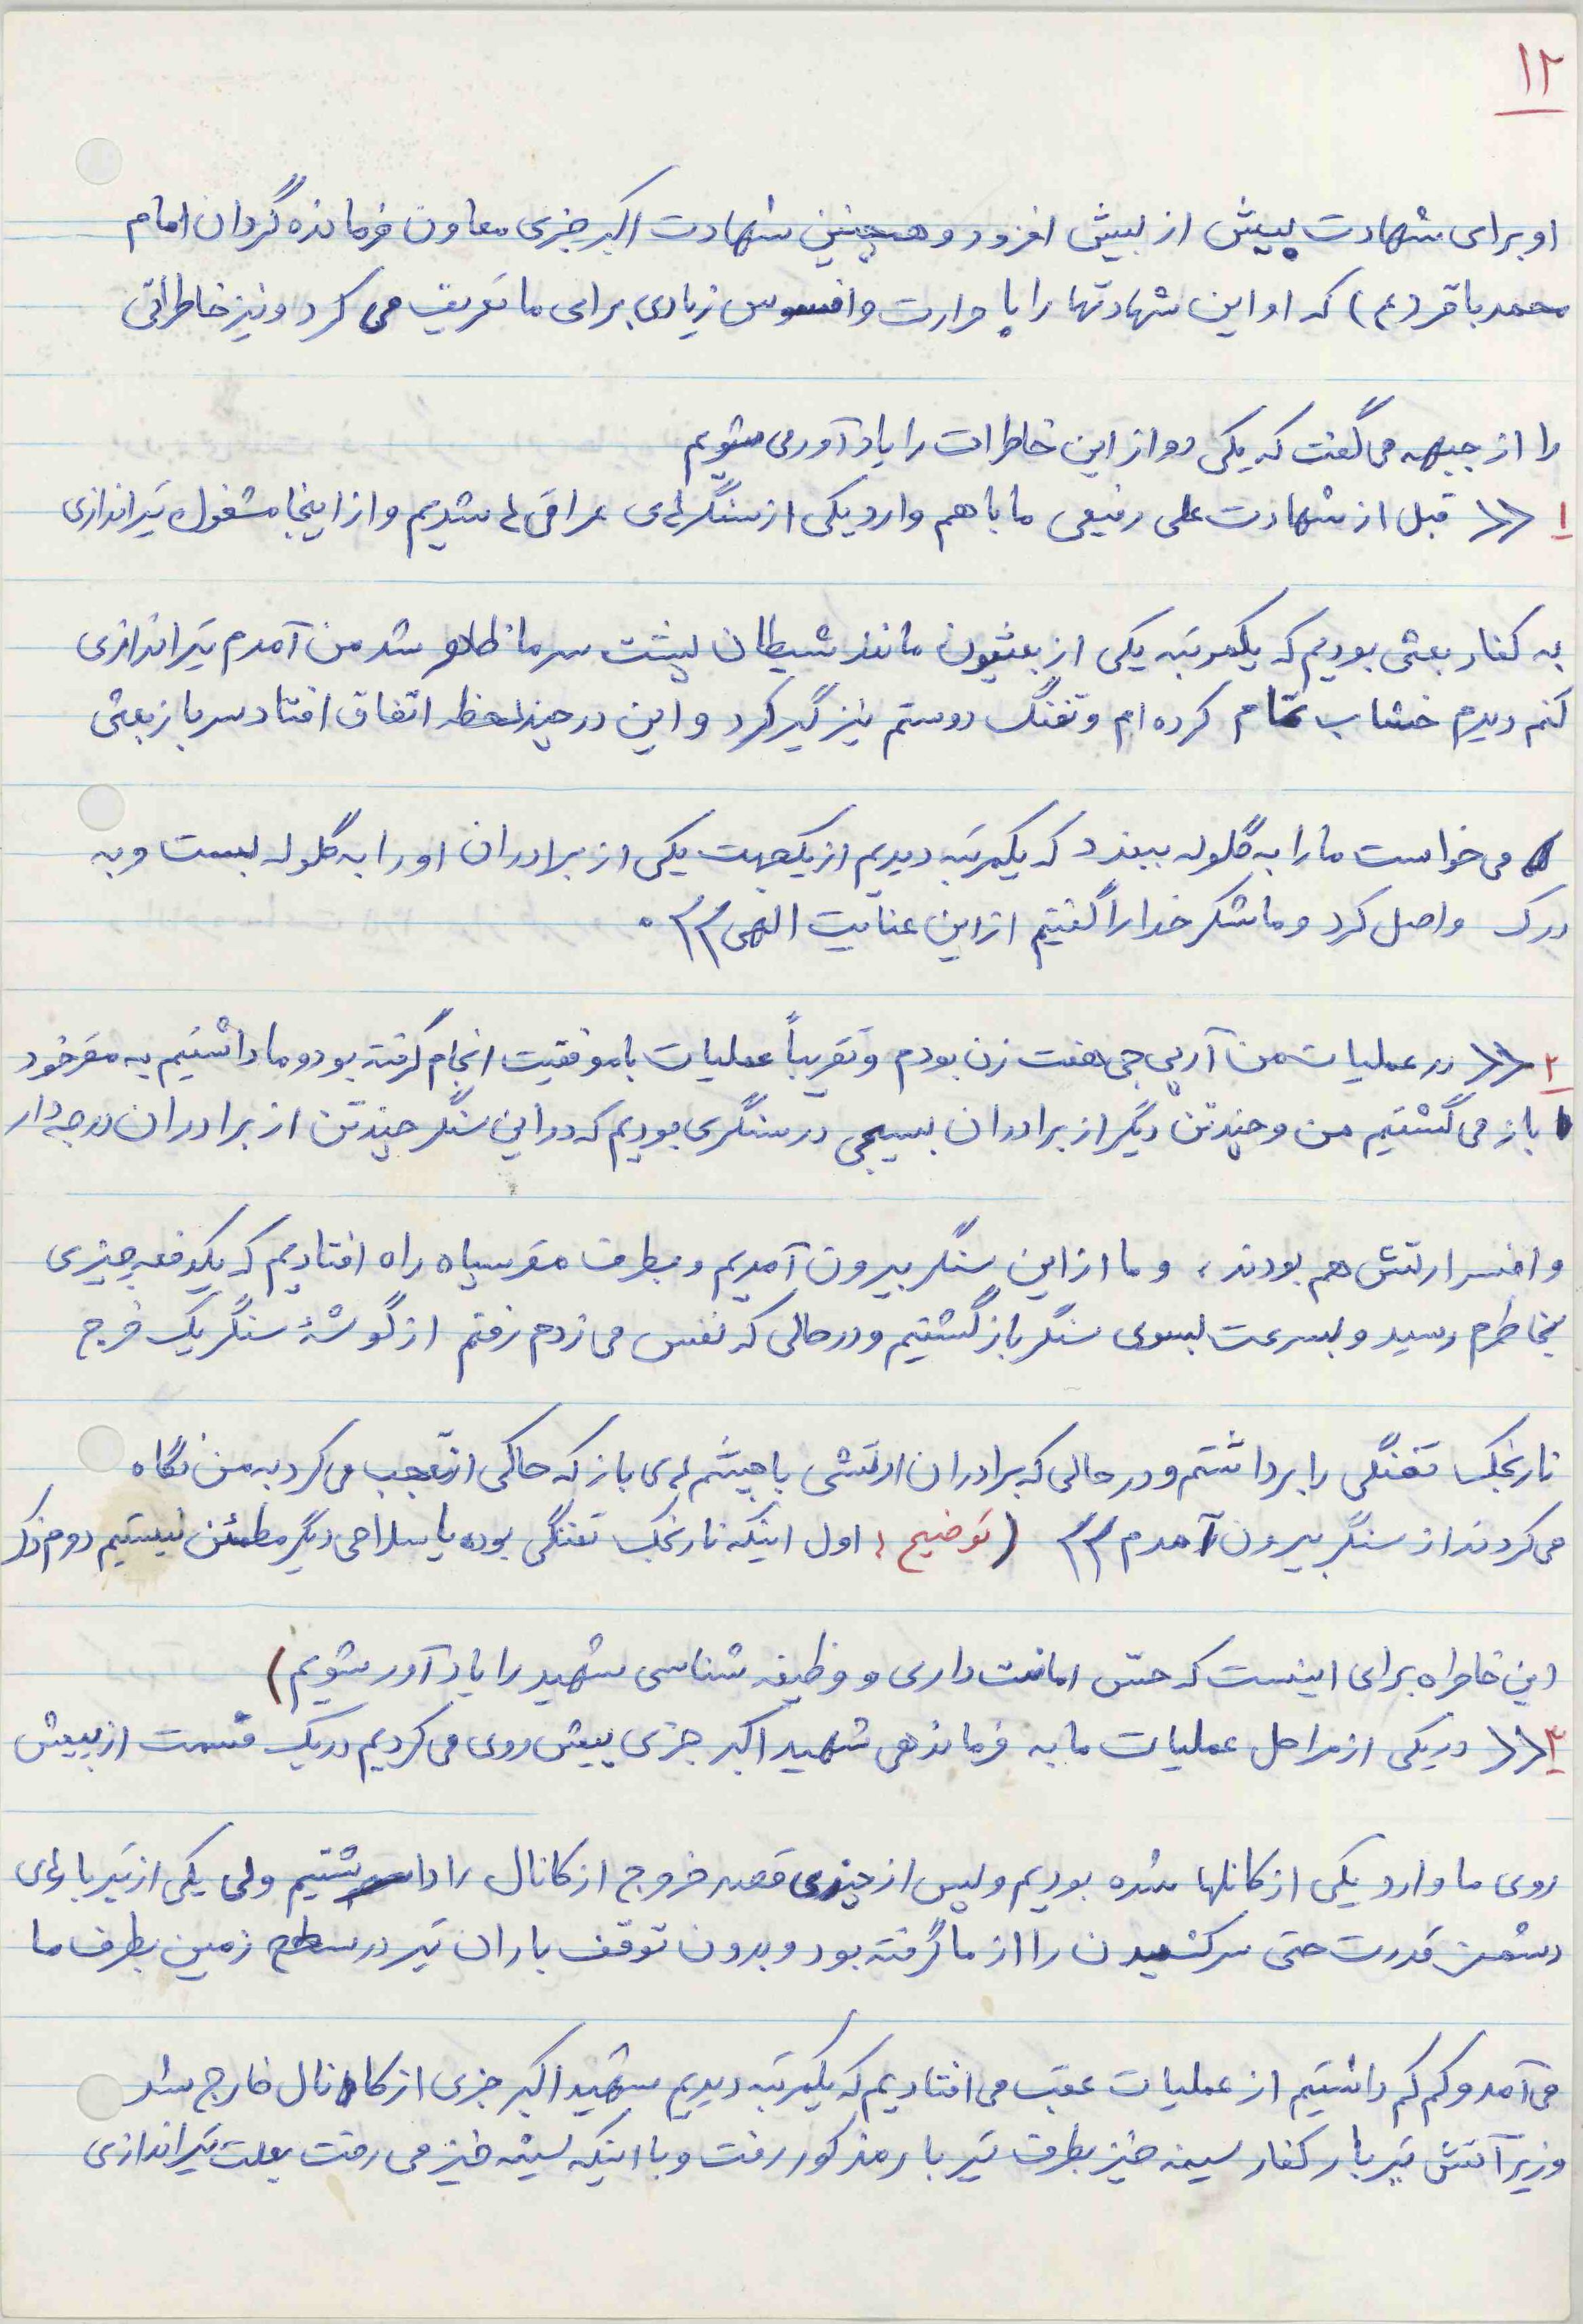 ۱۲
او برای شهادت بیش از بیش افزود و همچنین شهادت اکبر جزی معاون فرمانده گردان امام
محمد باقر (ع) که او این شهادتها را با حرارت و افسوس زیادی برای ما تعریف می کرد و نیز خاطراتی
را از جبهه می گفت که یکی دو از این خاطرات را یادآور می شویم
۱ « قبل از شهادت علی رفیعی ما با هم وارد یکی از سنگرهای عراقی ها شدیم و از اینجا مشغول تیراندازی
به کفار بعثی بودیم که یکمرتبه یکی از بعثیون مانند شیطان پشت سر ما ظاهر شد من آمدم تیراندازی
کنم دیدم خشاب تمام کرده ام و تفنگ دوستم نیز گیر کرد و این در چند لحظه اتفاق افتاد سرباز بعثی
می خواست ما را به گلوله ببندد که یکمرتبه دیدیم از یکجهت یکی از برادران او را به گلوله بست و به
درک واصل کرد و ما شکر خدا را گفتیم از این عنایت الهی » .
۲ « در عملیات من آرپی جی هفت زن بودم و تقریباً عملیات با موفقیت انجام گرفته بود و ما داشتیم به مقر خود
باز می گشتیم من و چند تن دیگر از برادران بسیجی در سنگری بودیم که در این سنگر چند تن از برادران درجه دار
و افسر ارتش هم بودند ، و ما از این سنگر بیرون آمدیم و بطرف مقر سپاه راه افتادیم که یکدفعه چیزی
بخاطرم رسید و بسرعت بسوی سنگر بازگشتیم و در حالی که نفس می زدم رفتم از گوشۀ سنگر یک فرج
نارنجک تفنگی را برداشتم و در حالی که برادران ارتشی با چشم های باز که حاکی از تعجب می کرد به من نگاه
می کردند از سنگر بیرون آمدم » (توضیح : اول اینکه نارنجک تفنگی بوده یا سلاحی دیگر مطمئن نیستیم دوم ذکر
این خاطره برای اینست که حس امانت داری و وظیفه شناسی شهید را یادآور شویم)
۳ « در یکی از مراحل عملیات ما به فرماندهی شهید اکبر جزی پیش روی می کردیم در یک قسمت از پیش
روی ما وارد یکی از کانلها شده بودیم و پس از چندی قصد خروج از کانال را داشتیم ولی یکی از تیربارهای
دشمن قدرت حتی سرکشیدن را از ما گرفته بود و بدون توقف باران تیر در سطح زمین بطرف ما
می آمد و کم کم داشتیم از عملیات عقب می افتادیم که یکمرتبه دیدیم شهید اکبر جزی از کانال خارج شد
و زیر آتش تیربار کفار سینه خیز بطرف تیربار مذکور رفت و با اینکه سینه خیز می رفت بعلت تیراندازی